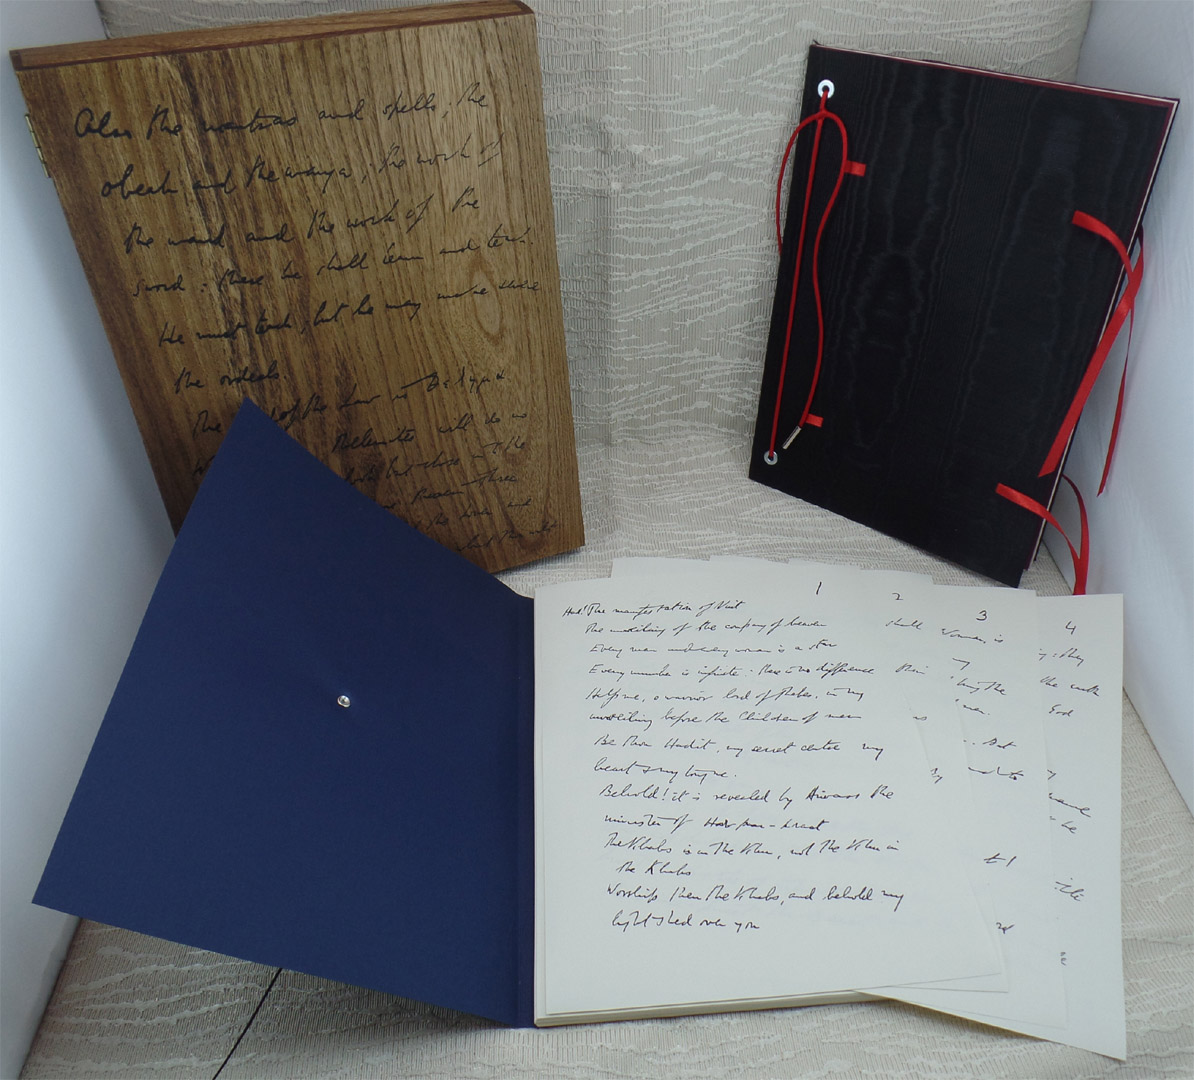 Also the mantras and spells; the
obeah and the wanga; the work of
the wand and the work of the
sword: these he shall learn and teach.
He must teach; but he may make severe
the ordeals.
The of the Law is Θελημα.
Thelemites will do no
but close into the
are therein three
the and
1
Had! The manifestation of Nuit
The unveiling of the company of heaven
Every man and every woman is a star
Every number is infinite: there is no difference
Help me, o warrior lord of Thebes, in my
unveiling before the Children of men
Be thou Hadit, my secret centre my
heart & my tongue.
Behold! it is revealed by Aiwass the
minister of Hoor-paar-kraat
The Khabs is in the Khu, not the Khu in
the Khabs
Worship then the Khabs, and behold my
light shed over you
2
shall
3
Woman is
the
men.
4
they
the
God